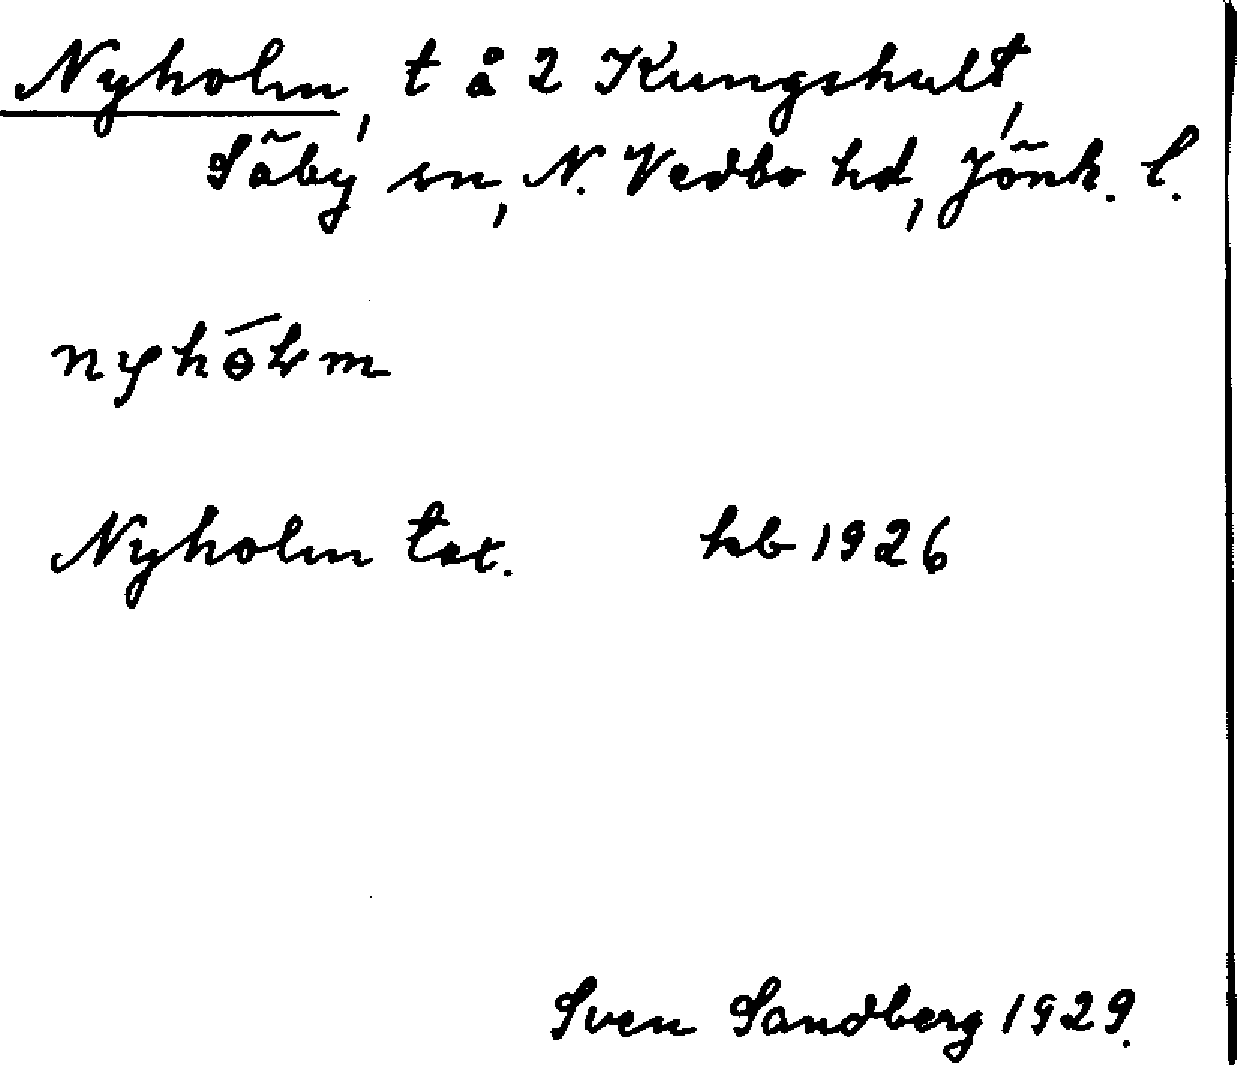 Nyholm, t å 2 Kungshult,
Säby sn, N. Vedbo hd, Jönk. l.
Nyholm tot. hb 1926
Sven Sandberg 1929.